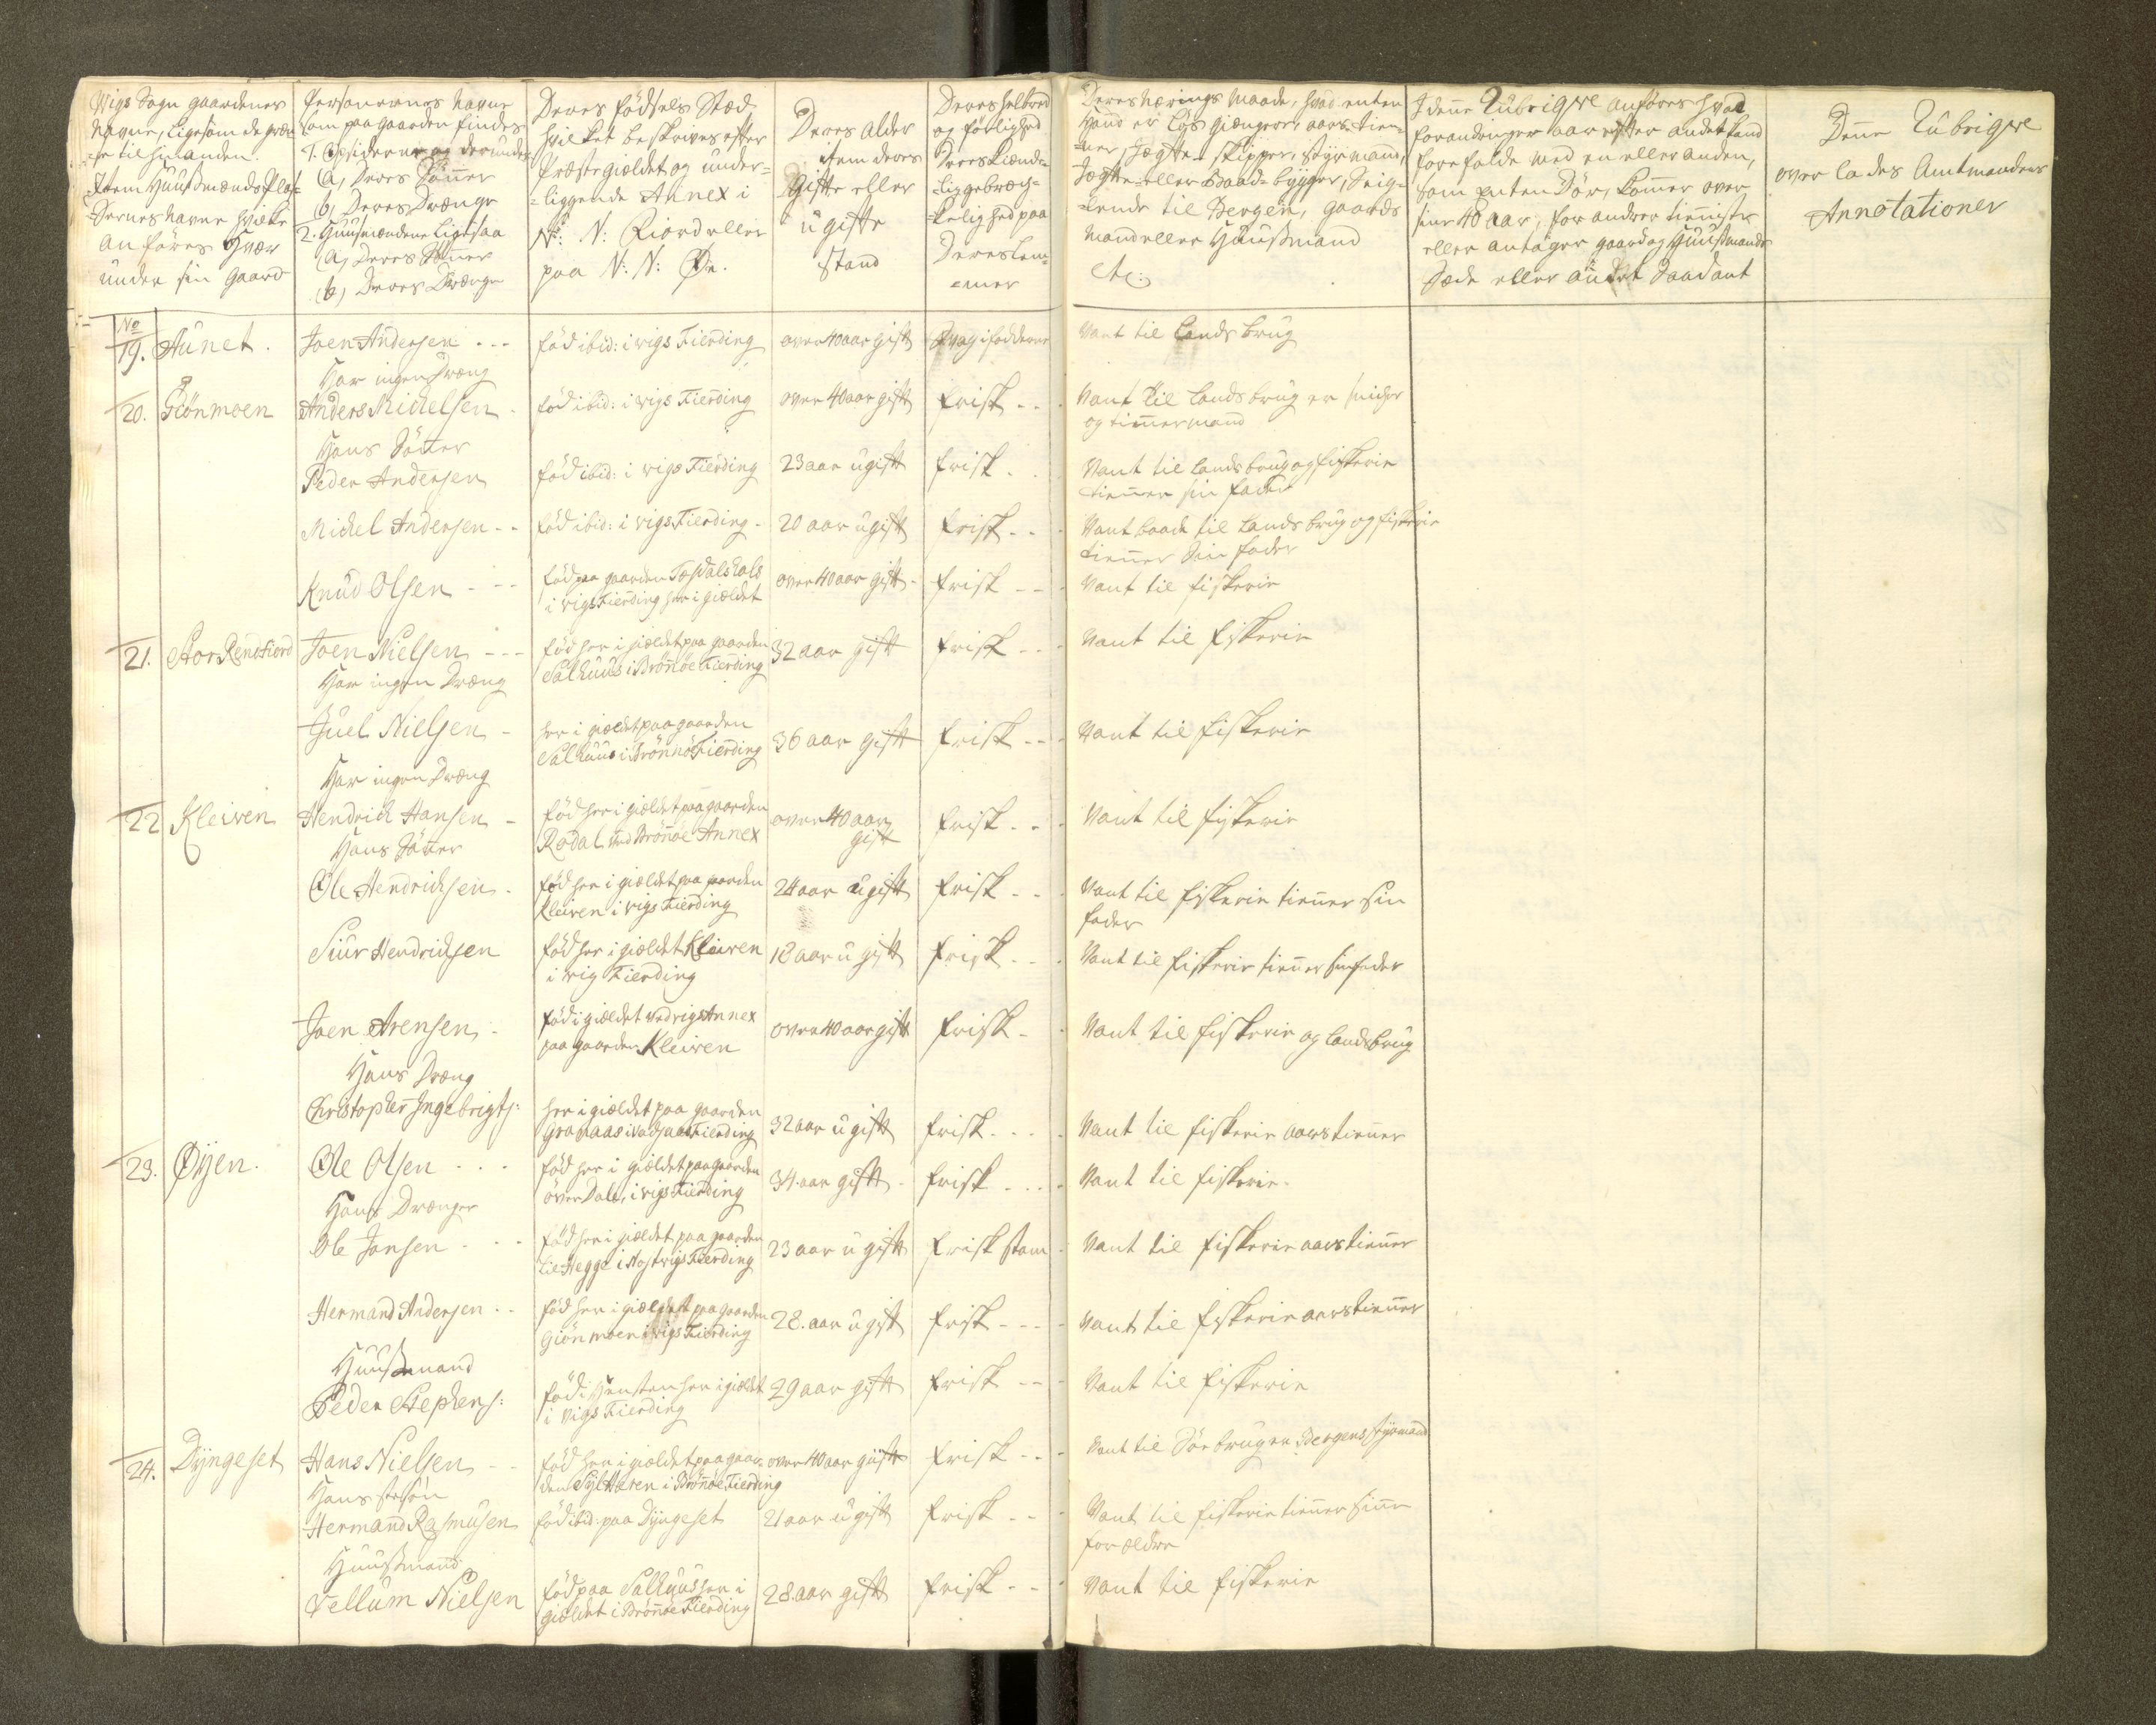 Wigs Sogn gaardenes
Navne, ligesom de græn-
-se til hinanden.
Item Huusmænds Plad-
-sernes Navne hvilke
anföres hver
under sin gaard
Personernes Navne
som paa gaarden findes
1. Opsidderne og derunder
(a) Deres Sönner
(b) Deres Drænge
2. Huusmændene ligesaa
(a) Deres Sönner
(b) Deres Drænge
Deres födsels Stæd
hvilket beskrives efter
Præstegieldet og under-
-liggende Annex i
N: N: Fiord eller
paa N: N: Øe.
Deres alder
item deres
gifte eller
ugifte
stand
Deres helbred
og förlighed
Deres kiende-
-lige bræck-
-felighed paa
Deres lem-
-mer
Deres nærings Maade, hvad enten
hand er lös giænger, aars tien-
-ner, Jægte-skipper, Styrmand,
Jægte- eller Baad-bygger, Seig-
-lende til Bergen, gaards
Mand eller Huusmand
etc:
I denne Rubriqve anföres hvad
forandringer aar efter andet kand
forefalde med en eller anden,
som enten Dör, kommer over
sine 40 aar, forandrer tienniste
eller antager gaard og Huusmands
Sæde eller andet saadant
Denne Rubriqve
over lades Amtmandens
Annotationer
No
19. Aunet. Joen Andersen ... föd ibid: i vigs Fierding over 40 aar gift Svag i födderne Vant til Lands brug
Har ingen Dræng
20. Giönmoen Anders Michelsen. föd ibid: i vigs Fierding over 40 aar gift frisk .. Vant til Lands brug er snidker
og timmermand
Hans Sönner
Peder Andersen föd ibid: i vigs Fierding 23 aar ugift frisk . Vant til Lands brug og fiskerie
tienner sin fader
Michel Andersen -- föd ibid: i vigs Fierding - 20 aar ugift frisk .. Vant baade til Lands brug og fiskerie
tienner Sin fader
Knud Olsen - -- föd paa gaarden Tosdals Eals
i vigs Fierding her i gieldet over 40 aar gift - frisk -- Vant til fiskerie
21. Stor Rensfiord Joen Nielsen --- föd her i gieldet paa gaarden
Salhuus i Brönnöe Fierding 32 aar gift frisk -- Vant til fiskerie
Har ingen Dræng
Juel Nielsen - her i gieldet paa gaarden
Salhuus i Brönnö Fierding 36 aar gift frisk -- Vant til fiskerie
Har ingen Dræng
22 Kleiven Hendrich Hansen - föd her i gieldet paa gaarden
Rødal ved Brönnöe Annex over 40 aar
gift frisk .. Vant til fiskerie
Hans Sönner
Ole Hendrichsen . föd her i gieldet paa gaarden
Kleiven i vigs Fierding 24 aar ugift frisk .. Vant til fiskerie tienner sin
fader
Siur Hendrichsen föd her i gieldet Kleiven
i vig Fierding 18 aar ugift frisk .. Vant til fiskerie tienner sin fader
Joen Arensen - föd i gieldet ved vigs Annex
paa gaarden Kleiven over 40 aar gift frisk - Vant til fiskerie og landsbrug
Hans Dræng
Christopher Ingebrigts: her i gieldet paa gaarden
Fierding 32 aar ugift frisk ... Vant til fiskerie aarstienner
23. Øyen. Ole Olsen ... föd her i gieldet paa gaarden
över Dale, i vigs Fierding 34. aar gift. frisk ... Vant til fiskerie.
Hans Drænger
Ole Jansen ... föd her i gieldet paa gaarden
Fierding 23 aar ugift frisk stam Vant til fiskerie aarstienner
Hermand Andersen .. föd her i gieldet paa gaarden
Giönmoen i vigs Fierding 28. aar ugift frisk --- Vant til fiskerie aarstienner
Huusmand
Peder Stephens: föd i her i gieldet
i vigs Fierding 29 aar gift frisk -- Vant til fiskerie
24. Dyngeset Hans Nielsen -- föd her i gieldet paa gaar-
den Sylteren i Brönnöe Fierding over 40 aar gift frisk -- Vant til Söe brug en Bergens styrmand
Hans stesön
Hermand Rasmusen föd ibid: paa Dyngeset 21 aar ugift frisk -- Vant til fiskerie tienner sinne
forældre
Huusmand
Vellum Nielsen föd paa Salhuus her i
gieldet i Brönnöe Fierding 28. aar gift frisk -- Vant til fiskerie